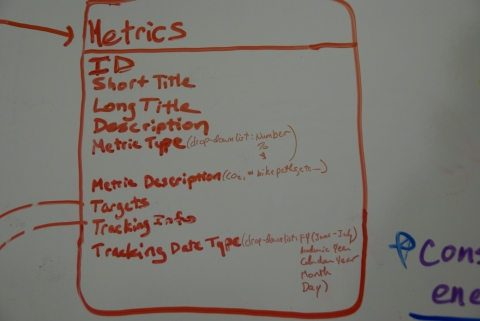 Metrics
ID
Short Title
Long Title
Description
Metric Type (drop-down list: Number
%
$)
Metric Description (CO2, # bike paths, etc...)
Targets
Tracking Info
Tracking Date Type (drop-down list: FY (June-July)
Academic Year
Calendar Year
Month
Day)
Cons
ene